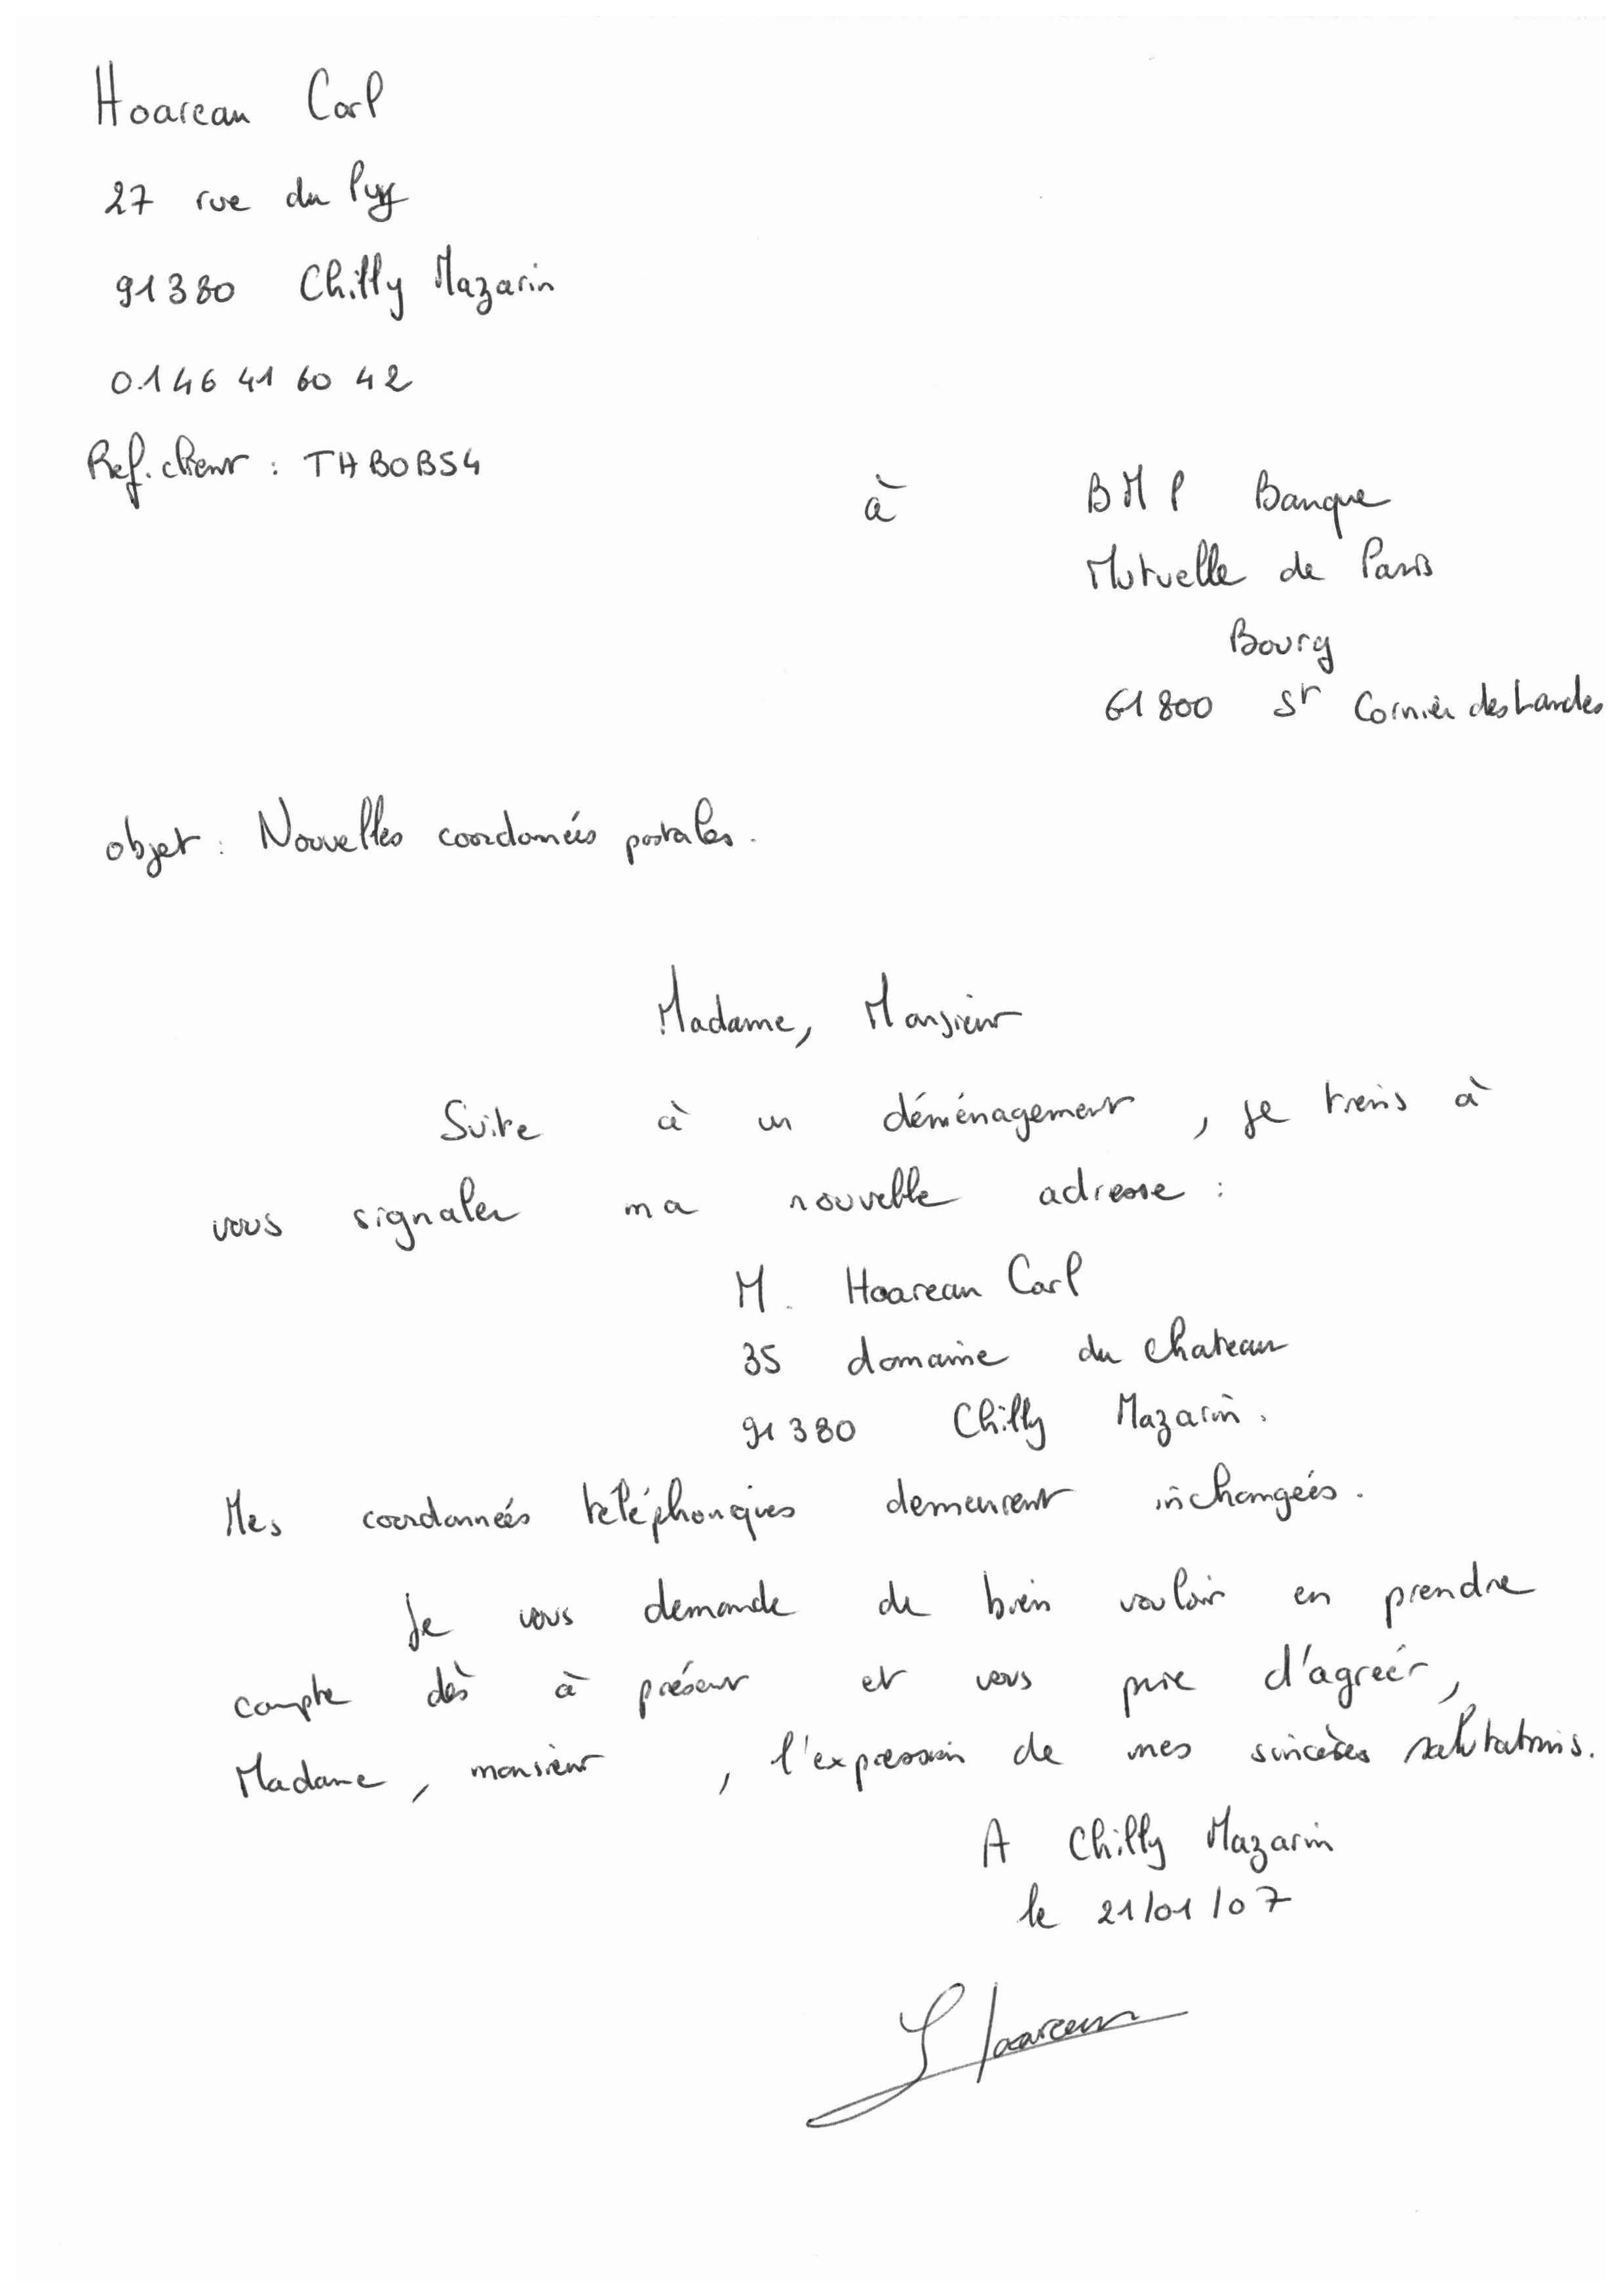 Hoareau Carl
27 rue du Puy
91380 Chilly Mazarin
01 46 41 60 42
Ref. client : THBOB54
à
BMP Banque
Mutuelle de Paris
Bourg
61800 St Cornier des Landes
objet : Nouvelles coordonnées postales.
Madame, Monsieur
Suite à un déménagement, je tiens à
vous signaler ma nouvelle adresse :
M. Hoareau Carl
35 domaine du chateau
91380 Chilly Mazarin.
Mes coordonnées téléphoniques demeurent inchangées.
Je vous demande de bien vouloir en prendre
compte dès à présent et vous prie d'agréer,
Madame, monsieur, l'expression de mes sincères salutations.
A Chilly Mazarin
le 21/01/07
Hoareau